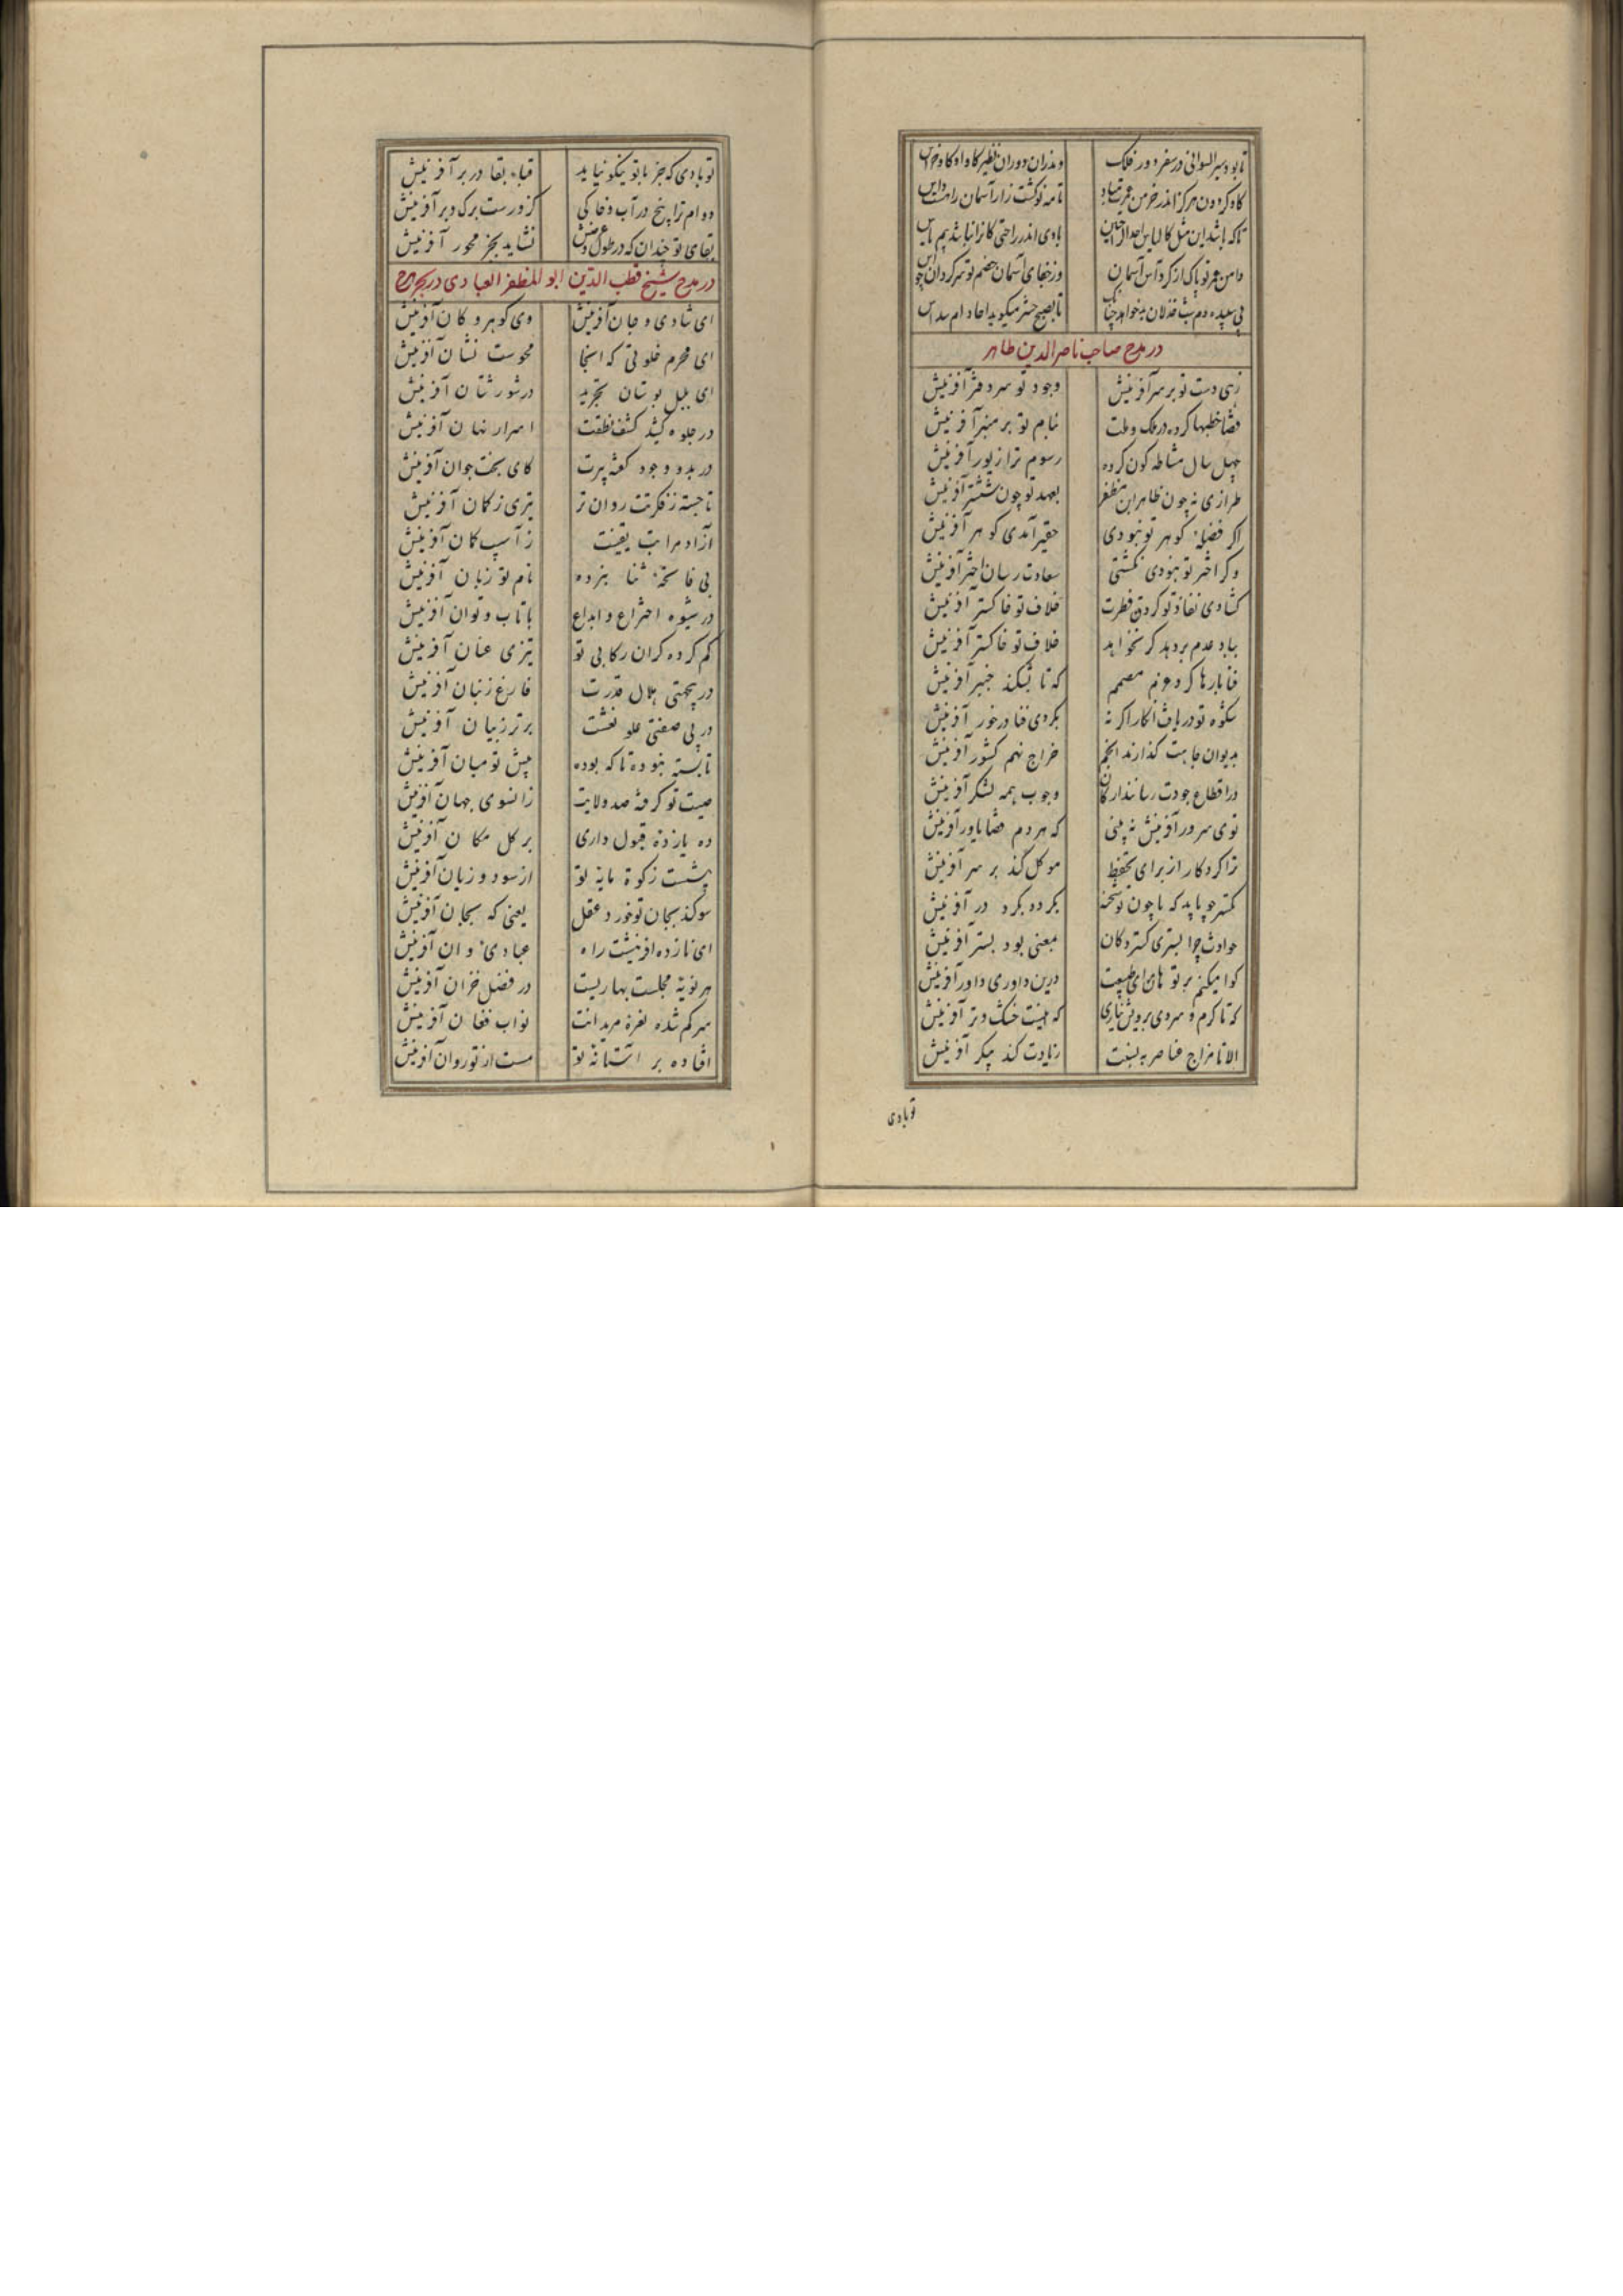 تا بود سیر السوانی در سفر دور فلک
وندران دوران نظیر گاو او گاو خراس
گاو گردون هرگز اندر خرمن عمرت مباد
تا مه نو کشت زار آسمان راهست داس
تا که باشد این مثل کالیاس احدی الراحتین
بادی اندر راحتی کانرا نباشد بیم یاس
دامن عمر تو پاک از گرد آس آسمان
وز جفای آسمان خصم تو سرگردان چو آس
بی سپیده دم شب خذلان بدخواهت چنانک
تا بصبح حشر میگوید احاد ام سداس
در مدح صاحب ناصر الدین طاهر
زهی دست تو بر سر آفرینش
وجود تو سر دفتر آفرینش
قضا خطبها کرده در ملک و ملت
بنام تو بر منبر آفرینش
چهل سال مشاطه کون کرده
رسوم ترا زیور آفرینش
طرازی نه چون طاهر ابن مظفر
بعهد تو چون ششتر آفرینش
اگر فضله گوهر تو نبودی
حقیر آمدی گوهر آفرینش
وگر اختر تو نبودی نگشتی
سعادت رسان اختر آفرینش
کشادی نفاذ تو گردون فطرت
خلاف تو خاکستر آفرینش
بباد عدم بر دهد گر نخواهد
خلاف تو خاکستر آفرینش
فنا بارها کرد عزم مصمم
که تا بشکند خیبر آفرینش
شکوه تو دریافت آن کار اگر نه
بکردی فنا در خور آفرینش
بدیوان جاهت گذارند انجم
خراج نهم کشور آفرینش
در اقطاع جودت رسانند ارکان
وجوب همه لشکر آفرینش
توی سرور آفرینش نه بینی
که هر دم قضا یاور آفرینش
ترا کردکار از برای تحفظ
موکل کند بر سر آفرینش
کمتر جو یابد که با چون تو شحنه
بگردد بگرد در آفرینش
حوادث چو ابستری گسترد کان
بمعنی بود بستر آفرینش
گوا میکنم بر تو هان ای طبیعت
درین داوری داور آفرینش
که تا گرم و سردی برویش نیاری
که اینست خشک و تر آفرینش
الا تا مزاج عناصر به نسبت
زیادت کند پیکر آفرینش
تو بادی
تو بادی که جز با تو نیکو نیاید
قباء بقا در بر آفرینش
دوام ترا بیخ در آب و خاکی
کزو رست برگ و بر آفرینش
بقای تو چندان که در طول و عرضش
نشاید بجز محور آفرینش
در مدح شیخ قطب الدین ابو المظفر العبادی در بحر هزج
ای شادی و جان آفرینش
وی گوهر و کان آفرینش
ای محرم خلوتی که انجا
محوست نشان آفرینش
ای بلبل بوستان تجرید
در شورستان آفرینش
در جلوه کشید کشف نطقت
اسرار نهان آفرینش
در بدو وجود گفته پیرت
کای بخت جوان آفرینش
نا جسته ز فکرتت روان تر
تیری ز کمان آفرینش
آزاد مراتب یقینت
ز آسیب گمان آفرینش
بی فاتحه ثنا نبرده
نام تو زبان آفرینش
در شیوه اختراع و ابداع
با تاب و توان آفرینش
گم کرده گران رکابی تو
تیزی عنان آفرینش
در بیجهتی بلال قدرت
فارغ ز بنان آفرینش
در بی صفتی علو نعتت
برتر ز بیان آفرینش
نا بسته نبوده تا که بوده
پیش تو میان آفرینش
صیت تو گرفته صد ولایت
زانسوی جهان آفرینش
ده یازده قبول داری
بر کل مکان آفرینش
بیشست زکوة مایه تو
از سود و زیان آفرینش
سوگند بجان تو خورد عقل
یعنی که بجان آفرینش
ای نازده آفرینشت راه
عبادی و ان آفرینش
هر نوبة مجلست بهاریست
در فصل خزان آفرینش
سرگم شده نعره مریدانت
نواب فغان آفرینش
افتاده بر آستانه تو
مست از تو روان آفرینش